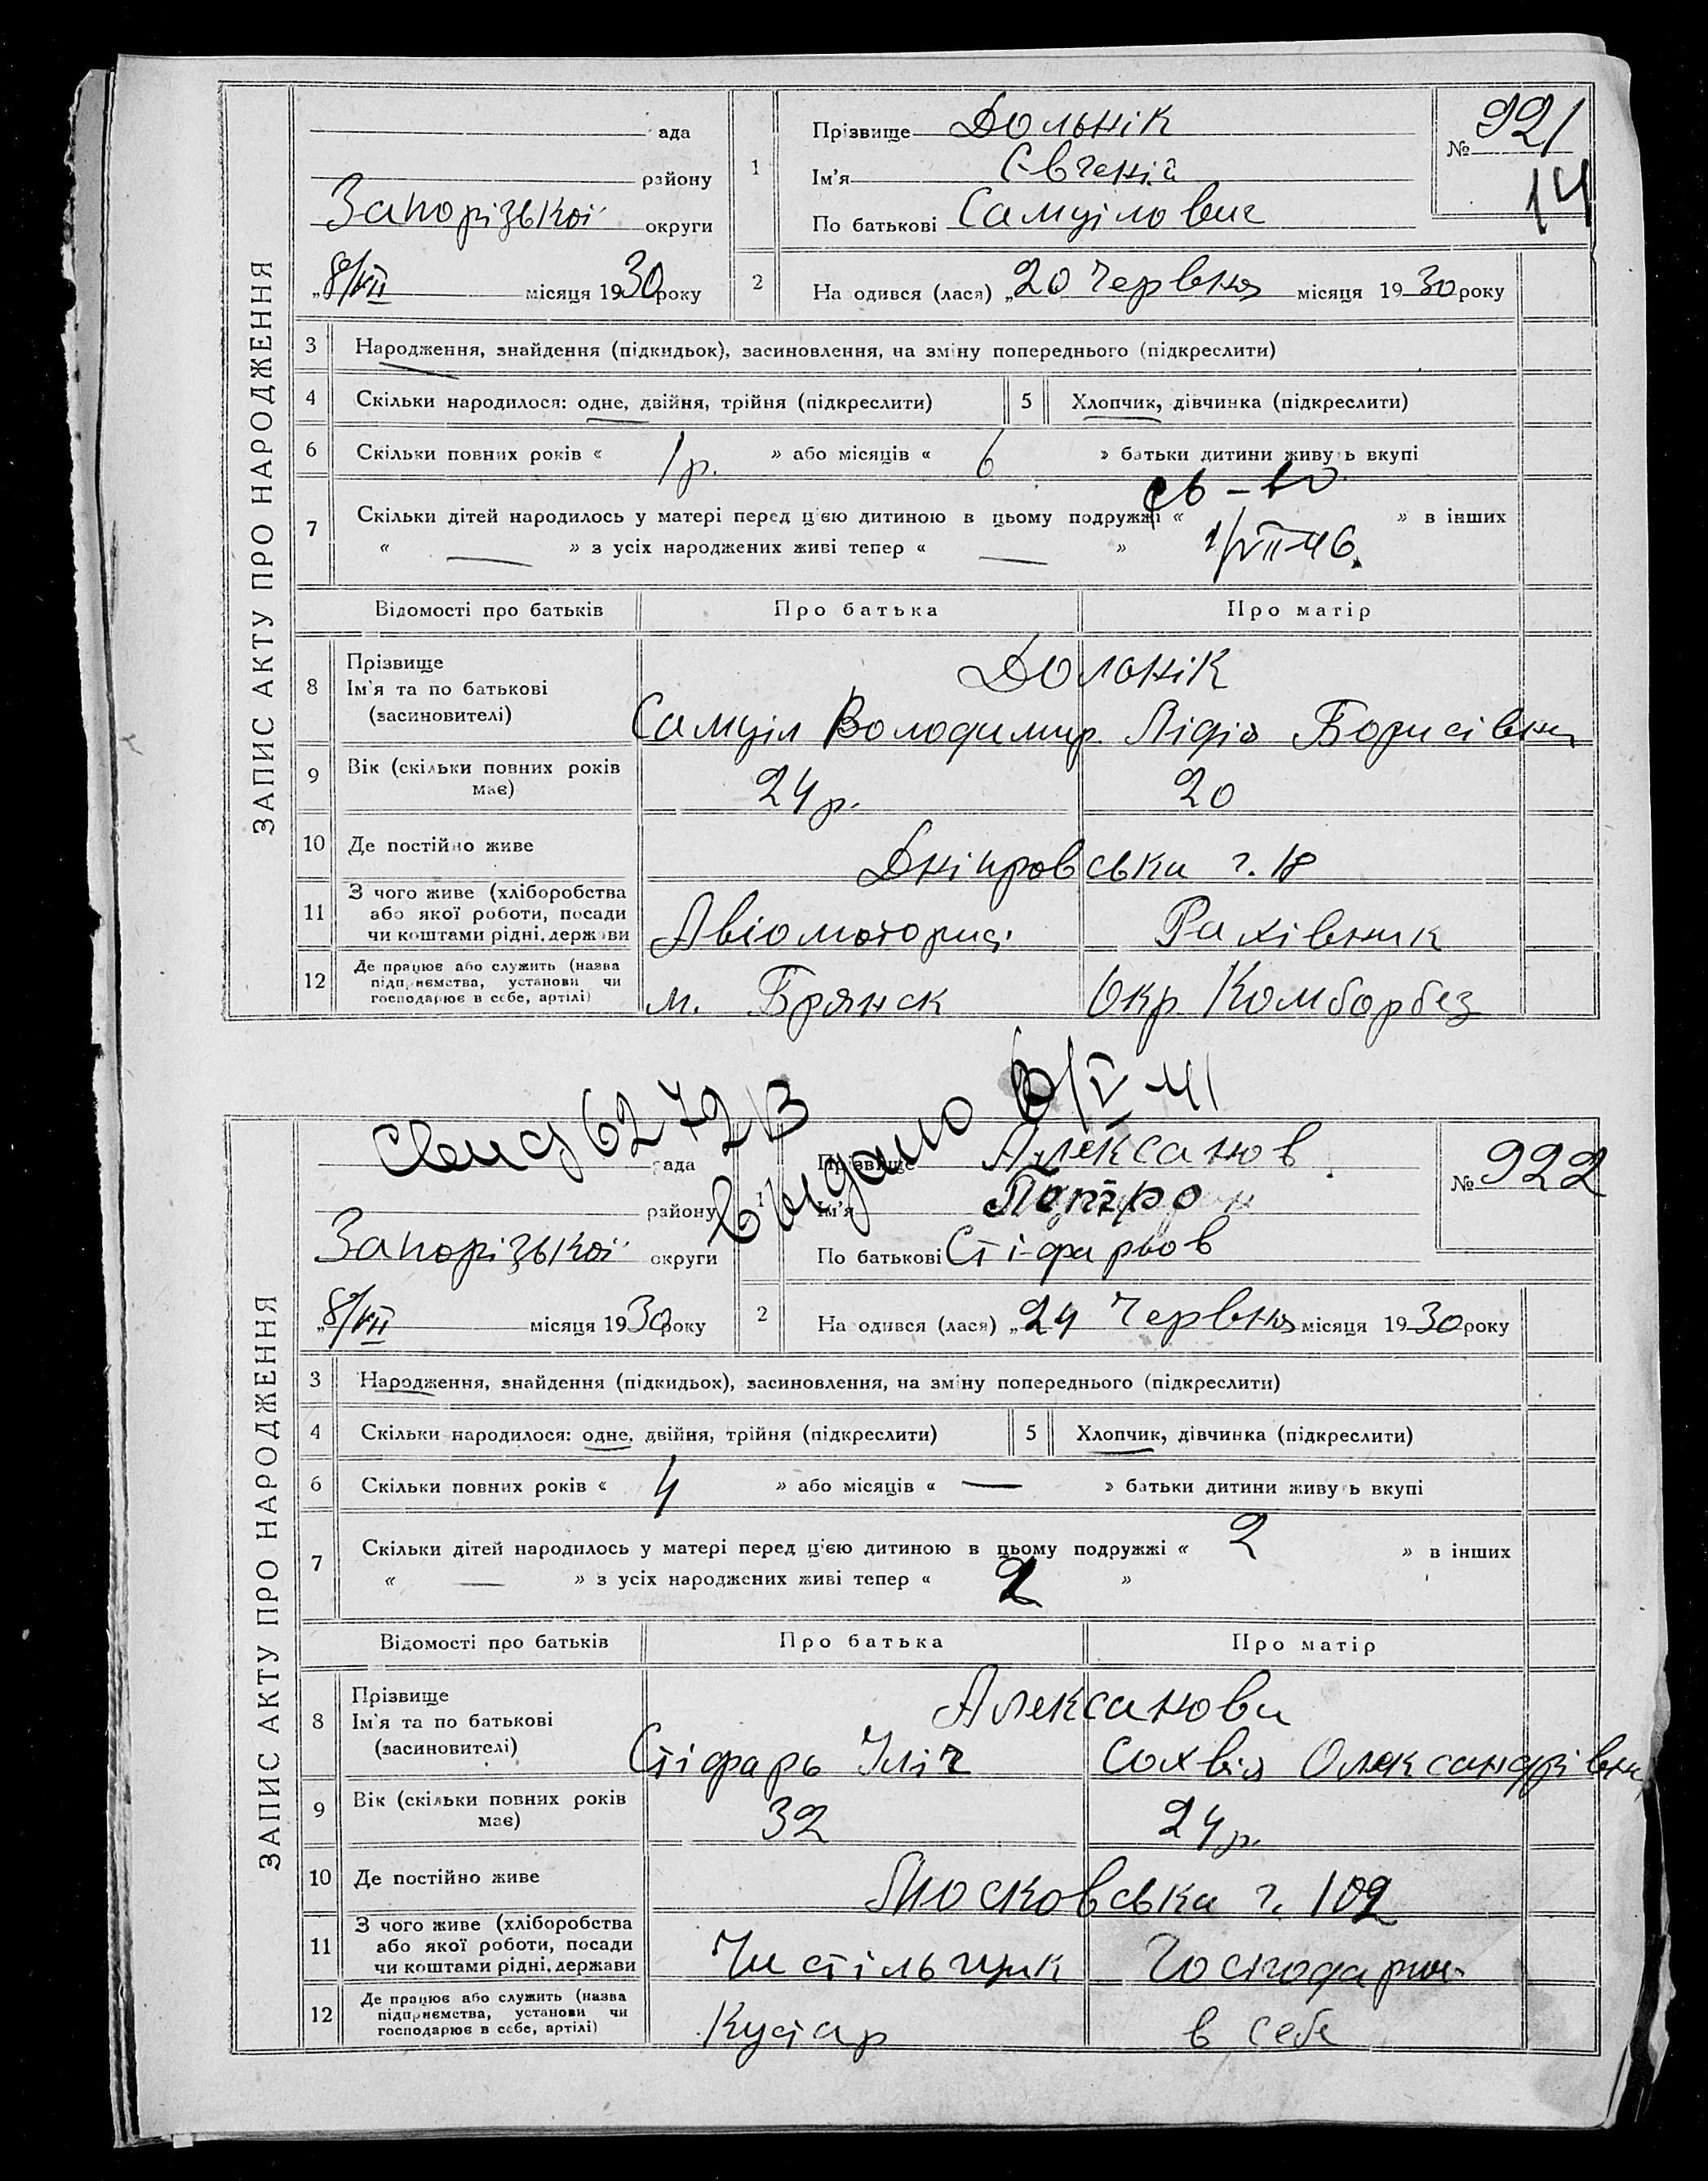 ЗАПИС АКТУ ПРО НАРОДЖЕННЯ
ада
району
Запорізької округи
„8/VII місяця 1930 року
1
Прізвище Дольнік
Ім'я Євгеній
По батькові Самуілович
№ 921
14
2 На одився (лася) „20 Червня місяця 1930 року
3 Народження, знайдення (підкидьок), засиновлення, на зміну попереднього (підкреслити)
4 Скільки народилося: одне, двійня, трійня (підкреслити) 5 Хлопчик, дівчинка (підкреслити)
6 Скільки повних років « 1 р. » або місяців « 6 » батьки дитини живуть вкупі
7 Скільки дітей народилось у матері перед цією дитиною в цьому подружжі « » в інших
« — » з усіх народжених живі тепер « — »
св-во
1/VII-46.
Відомості про батьків Про батька Про матір
8 Прізвище
Ім'я та по батькові
(засиновителі)
Дольнік
Самуіл Володимир. Лідія Борисівна
9 Вік (скільки повних років має) 24 р. 20
10 Де постійно живе Дніпровська ч. 18
11 З чого живе (хліборобства
або якої роботи, посади
чи коштами рідні, держави
Авіомоторис. Рахівник
12 Де працює або служить (назва
підприємства, установи чи
господарює в себе, артілі)
м. Брянск Окр. Комборбез
Свид 6272 В
Выдано 6/V-41
ЗАПИС АКТУ ПРО НАРОДЖЕННЯ
рада
району
Запорізької округи
„8/VII місяця 1930 року
1
Прізвище Алексанов
Ім'я Петро
По батькові Стіфарьов
№ 922
2 На одився (лася) „24 Червня місяця 1930 року
3 Народження, знайдення (підкидьок), засиновлення, на зміну попереднього (підкреслити)
4 Скільки народилося: одне, двійня, трійня (підкреслити) 5 Хлопчик, дівчинка (підкреслити)
6 Скільки повних років « 4 » або місяців « — » батьки дитини живуть вкупі
7 Скільки дітей народилось у матері перед цією дитиною в цьому подружжі « 2 » в інших
« — » з усіх народжених живі тепер « 2 »
Відомості про батьків Про батька Про матір
8 Прізвище
Ім'я та по батькові
(засиновителі)
Алексанови
Стіфарь Ілiч Сохвія Олександрівна
9 Вік (скільки повних років має) 32 24 р.
10 Де постійно живе Московська ч. 109
11 З чого живе (хліборобства
або якої роботи, посади
чи коштами рідні, держави
Чистільщик Господарюе
12 Де працює або служить (назва
підприємства, установи чи
господарює в себе, артілі)
Кустар в себе